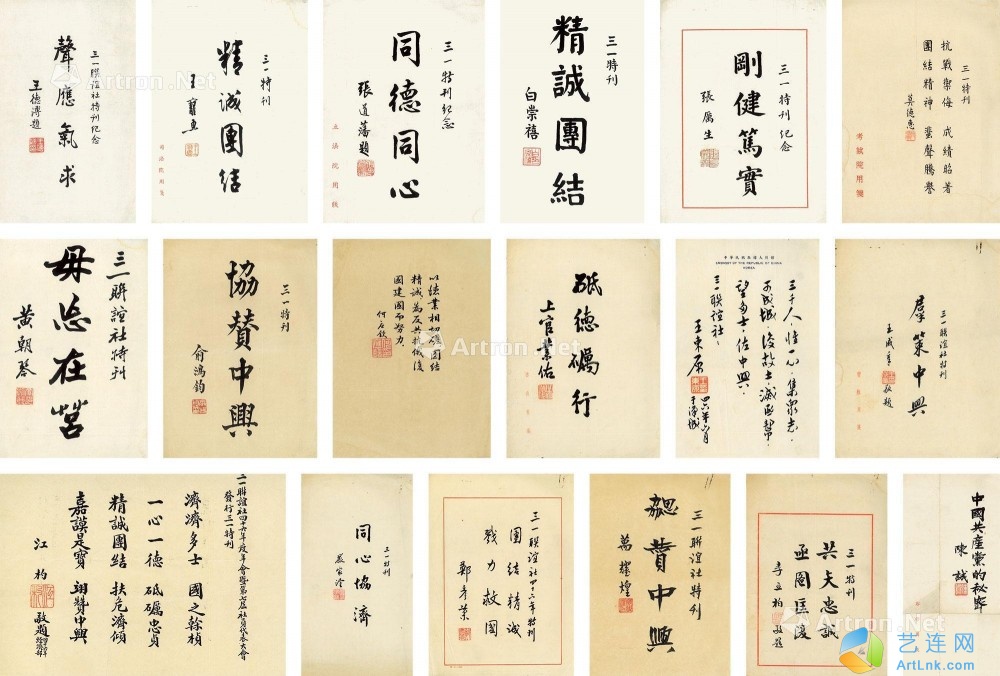 三一聯誼社特刊紀念
聲應氣求
王德溥題
三一特刊
精誠團結
司法院用箋
三一特刊紀念
同德同心
張道藩題
立法院用箋
三一特刊
精誠團結
白崇禧
三一特刊紀念
剛健篤實
張厲生
三一特刊
抗戰禦侮 成績昭著
團結精神 蜚聲騰譽
莫德惠
考試院用箋
三一聯誼社特刊
毋忘在莒
黃朝琴
三一特刊
協贊中興
俞鴻鈞
精誠為反共抗俄復
國建國而努力
何應欽
砥德礪行
上官業佑
中華民國駐韓大使館
EMBASSY OF THE REPUBLIC OF CHINA
KOREA
三千人，惟一心，集眾志，
可成城，復故土，滅匪幫，
望多士，佐中興，
三一聯誼社。
王東原
三一聯誼社特刊
群策中興
王成章敬題
三一聯誼社四十六年度年會暨第七屆社員代表大會
發行三一特刊
濟濟多士 國之榦楨
一心一德 砥礪忠貞
精誠團結 扶危濟傾
嘉謨是寶 翊贊中興
江杓敬題
三一特刊
同心協濟
嚴家淦
三一聯誼社四十六年特刊
團結精誠
戮力救國
鄭彥棻
三一聯誼社特刊
勰贊中興
萬耀煌
三一特刊
共矢忠誠
亟圖匡復
李立柏敬題
中國共產黨的秘密
陳誠
Artron.Net
艺连网
ArtLnk.com